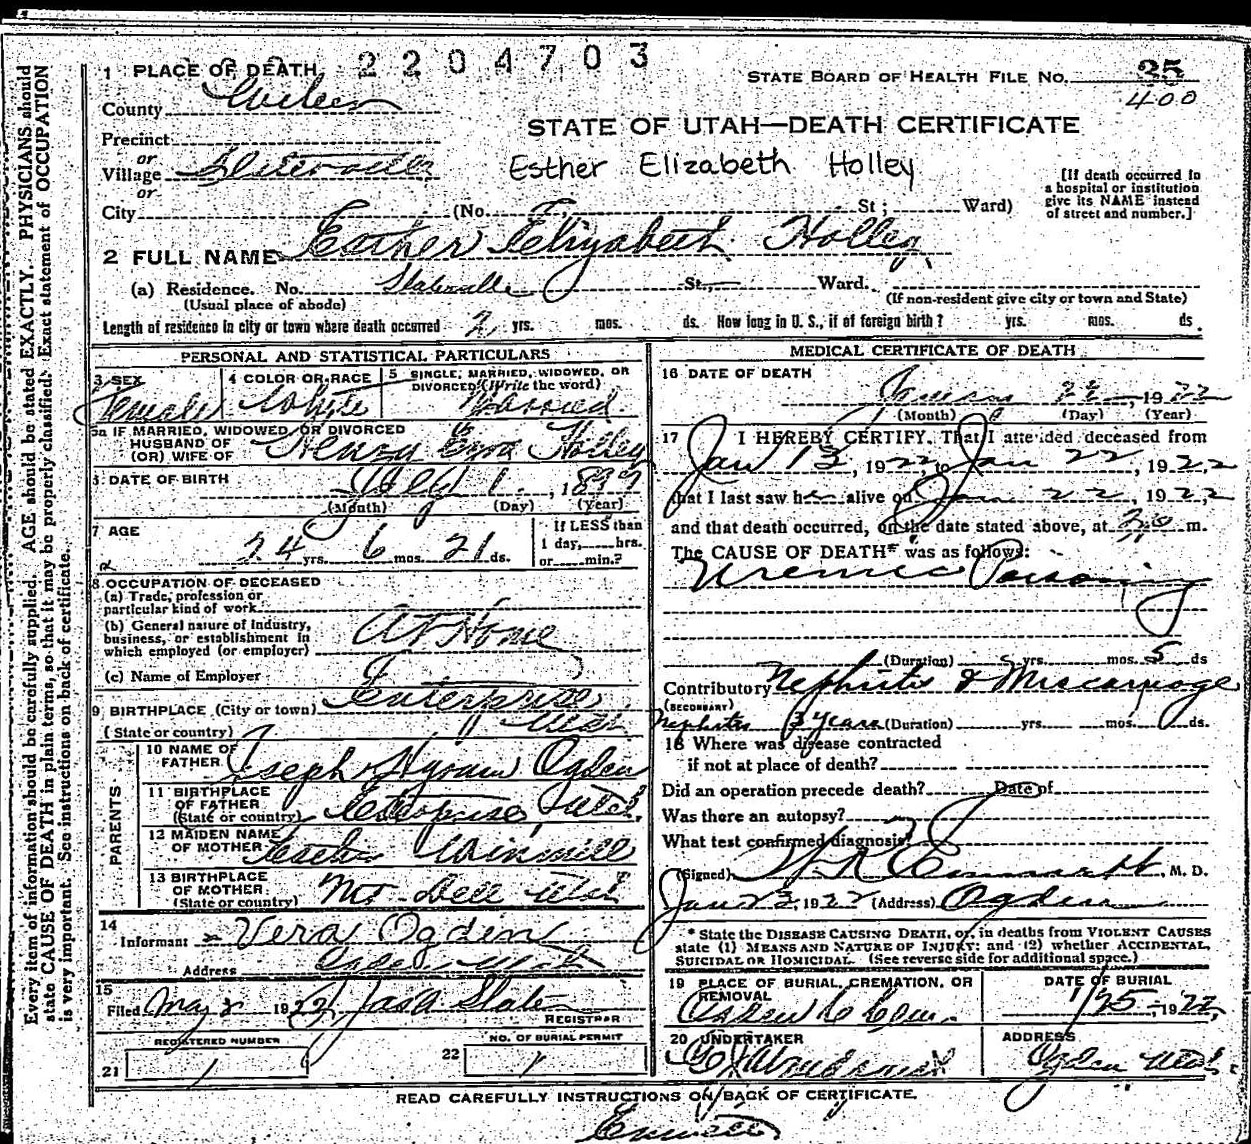 2204703
1 PLACE OF DEATH
STATE BOARD OF HEALTH FILE NO. 25
400
County Weber
STATE OF UTAH—DEATH CERTIFICATE
Precinct
or
Village Slaterville
Esther Elizabeth Holley
[If death occurred in
a hospital or institution
give its NAME instead
of street and number.]
or
City (No. St; Ward)
2 FULL NAME Esther Elizabeth Holley
(a) Residence. No. Slaterville St. Ward.
(Usual place of abode) (If non-resident give city or town and State)
Length of residence in city or town where death occurred 2 yrs. mos. ds. How long in U. S., if of foreign birth? yrs. mos. ds.
PERSONAL AND STATISTICAL PARTICULARS
3 SEX 4 COLOR OR RACE 5 SINGLE, MARRIED, WIDOWED, OR
DIVORCED (Write the word)
Female White Married
5a IF MARRIED, WIDOWED OR DIVORCED
HUSBAND OF
(OR) WIFE OF Henry Ezra Holley
6 DATE OF BIRTH July 1, 1897
(Month) (Day) (Year)
7 AGE 24 yrs. 6 mos. 21 ds.
If LESS than
1 day, hrs.
or min.?
8 OCCUPATION OF DECEASED
(a) Trade, profession or
particular kind of work
(b) General nature of industry,
business, or establishment in
which employed (or employer) At Home
(c) Name of Employer
9 BIRTHPLACE (City or town) Enterprise
(State or country) Utah
PARENTS
10 NAME OF
FATHER Joseph Hyrum Ogden
11 BIRTHPLACE
OF FATHER
(State or country) Enterprise, Utah.
12 MAIDEN NAME
OF MOTHER Winmill
13 BIRTHPLACE
OF MOTHER
(State or country) Mt Dell Utah
14
Informant Vera Ogden
Address Ogden Utah
15
Filed May 2 1922 Jas A Slater
REGISTRAR
REGISTERED NUMBER
21 1
NO. OF BURIAL PERMIT
22 1
MEDICAL CERTIFICATE OF DEATH
16 DATE OF DEATH
22, 1922
(Month) (Day) (Year)
17 I HEREBY CERTIFY, That I attended deceased from
Jan 13, 1922, to Jan 22, 1922
that I last saw her alive on Jan 22, 1922
and that death occurred, on the date stated above, at m.
The CAUSE OF DEATH* was as follows:
Uremic Poisoning
(Duration) yrs. mos. 5 ds
Contributory Nephritis & Miscarriage
(SECONDARY)
Nephritis 3 years (Duration) yrs. mos. ds.
18 Where was disease contracted
if not at place of death?
Did an operation precede death? Date of
Was there an autopsy?
What test confirmed diagnosis?
(Signed) Emmett, M. D.
Jan 23, 1922 (Address) Ogden
* State the DISEASE CAUSING DEATH, or, in deaths from VIOLENT CAUSES
state (1) MEANS AND NATURE OF INJURY; and (2) whether ACCIDENTAL,
SUICIDAL OR HOMICIDAL. (See reverse side for additional space.)
19 PLACE OF BURIAL, CREMATION, OR
REMOVAL
Ogden C Cem.
DATE OF BURIAL
1/25, 1922,
20 UNDERTAKER
ADDRESS
Ogden Utah
READ CAREFULLY INSTRUCTIONS ON BACK OF CERTIFICATE.
Emmett
Every item of information should be carefully supplied. AGE should be stated EXACTLY. PHYSICIANS should
state CAUSE OF DEATH in plain terms, so that it may be properly classified. Exact statement of OCCUPATION
is very important. See instructions on back of certificate.